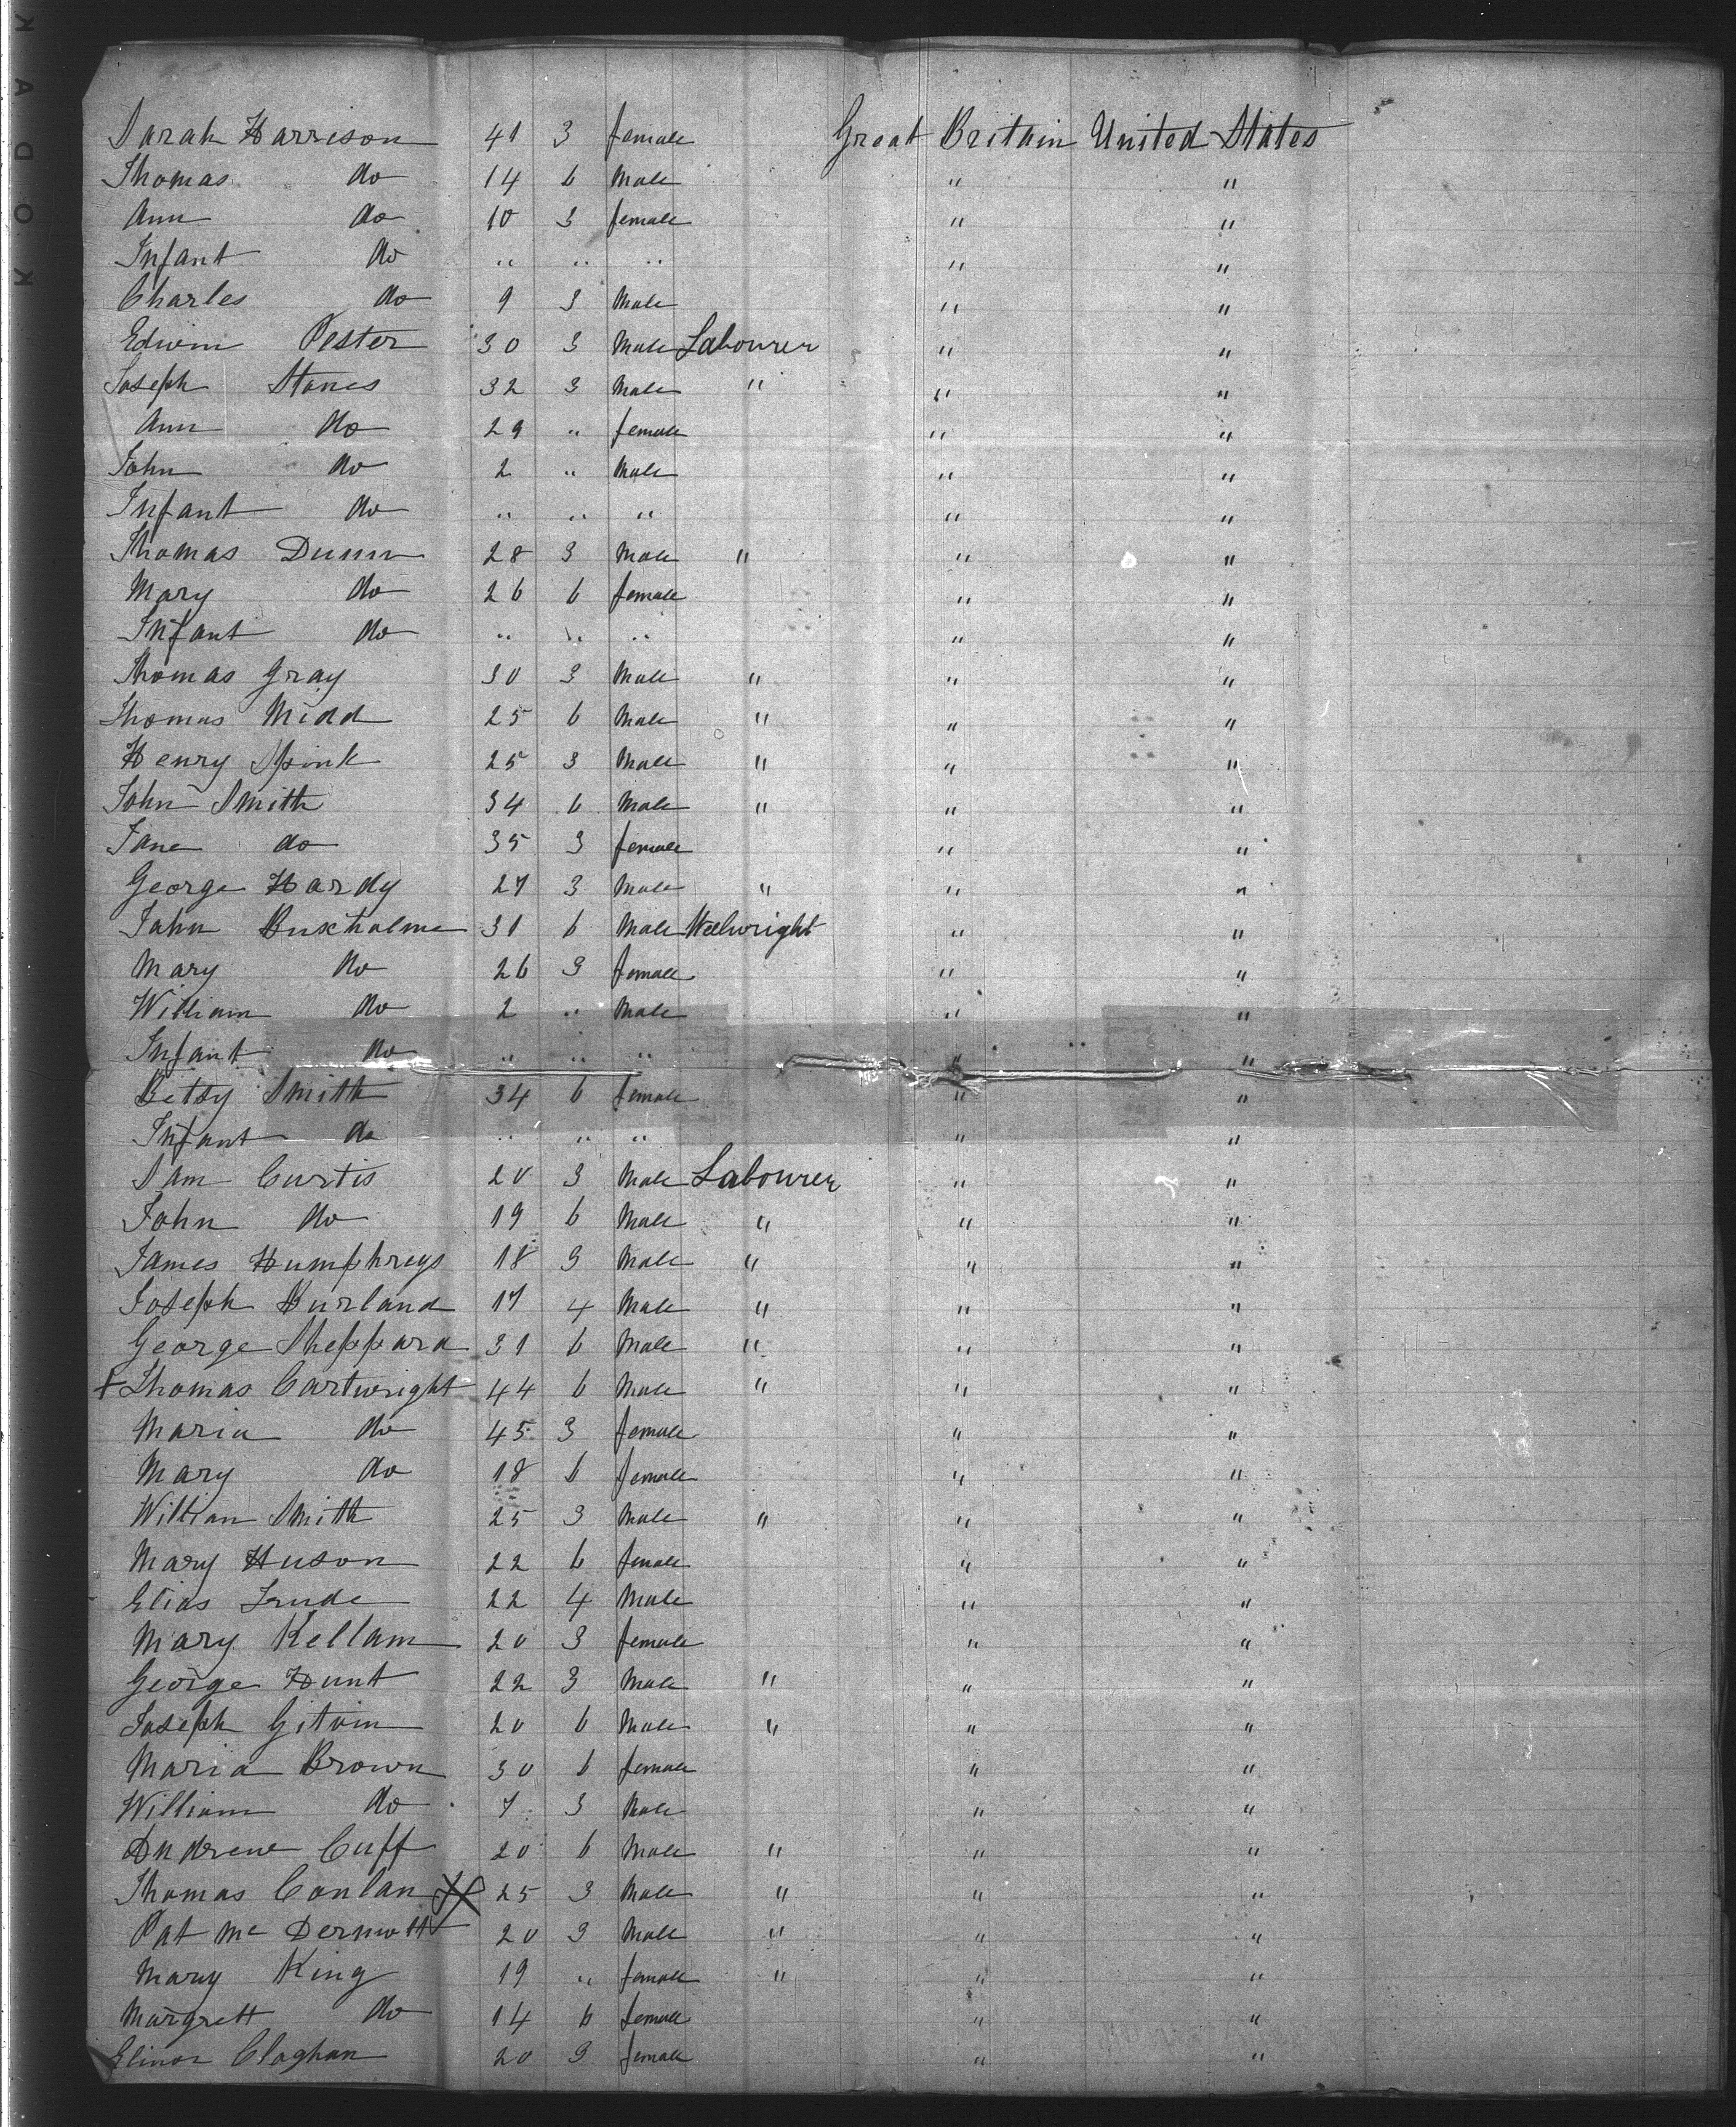 KODAK
Sarah Harrison 41 3 female Great Britain United States
Thomas do 14 6 Male " "
Ann do 10 3 female " "
Infant do " " " " "
Charles do 9 3 Male " "
Edwin Pester 30 3 Male Labourer " "
Joseph Stanes 32 3 Male " " "
Ann do 29 " female " "
John do 2 " Male " "
Infant do " " " " "
Thomas Dunn 28 3 Male " " "
Mary do 26 6 female " "
Infant do " " " " "
Thomas Gray 30 3 Male " " "
Thomas Midd 25 6 Male " " "
Henry Spink 25 3 Male " " "
John Smith 34 6 Male " " "
Jane do 35 3 female " "
George Hardy 27 3 Male " " "
John Buxholme 31 6 Male Welwright " "
Mary do 26 3 female " "
William do 2 " Male " "
Infant do " " " " "
Betsy Smith 34 6 female " "
Infant do " " " " "
Sam Curtis 20 3 Male Labourer " "
John do 19 6 Male " " "
James Humphreys 18 3 Male " " "
Joseph Burland 17 4 Male " " "
George Sheppard 31 6 Male " " "
Thomas Cartwright 44 6 Male " " "
Maria do 45 3 female " "
Mary do 18 6 female " "
William Smith 25 3 Male " " "
Mary Huson 22 6 female " "
Elias Trude 22 4 Male " "
Mary Kellam 20 3 female " "
George Hunt 22 3 Male " " "
Joseph Gitvin 20 6 Male " " "
Maria Brown 30 6 female " "
William do 7 3 Male " "
Andrew Cuff 20 6 Male " " "
Thomas Conlan 25 3 Male " " "
Pat Mc Dermott 20 3 Male " " "
Mary King 19 " female " " "
Margrett do 14 6 female " "
Elinor Claghan 20 3 female " "